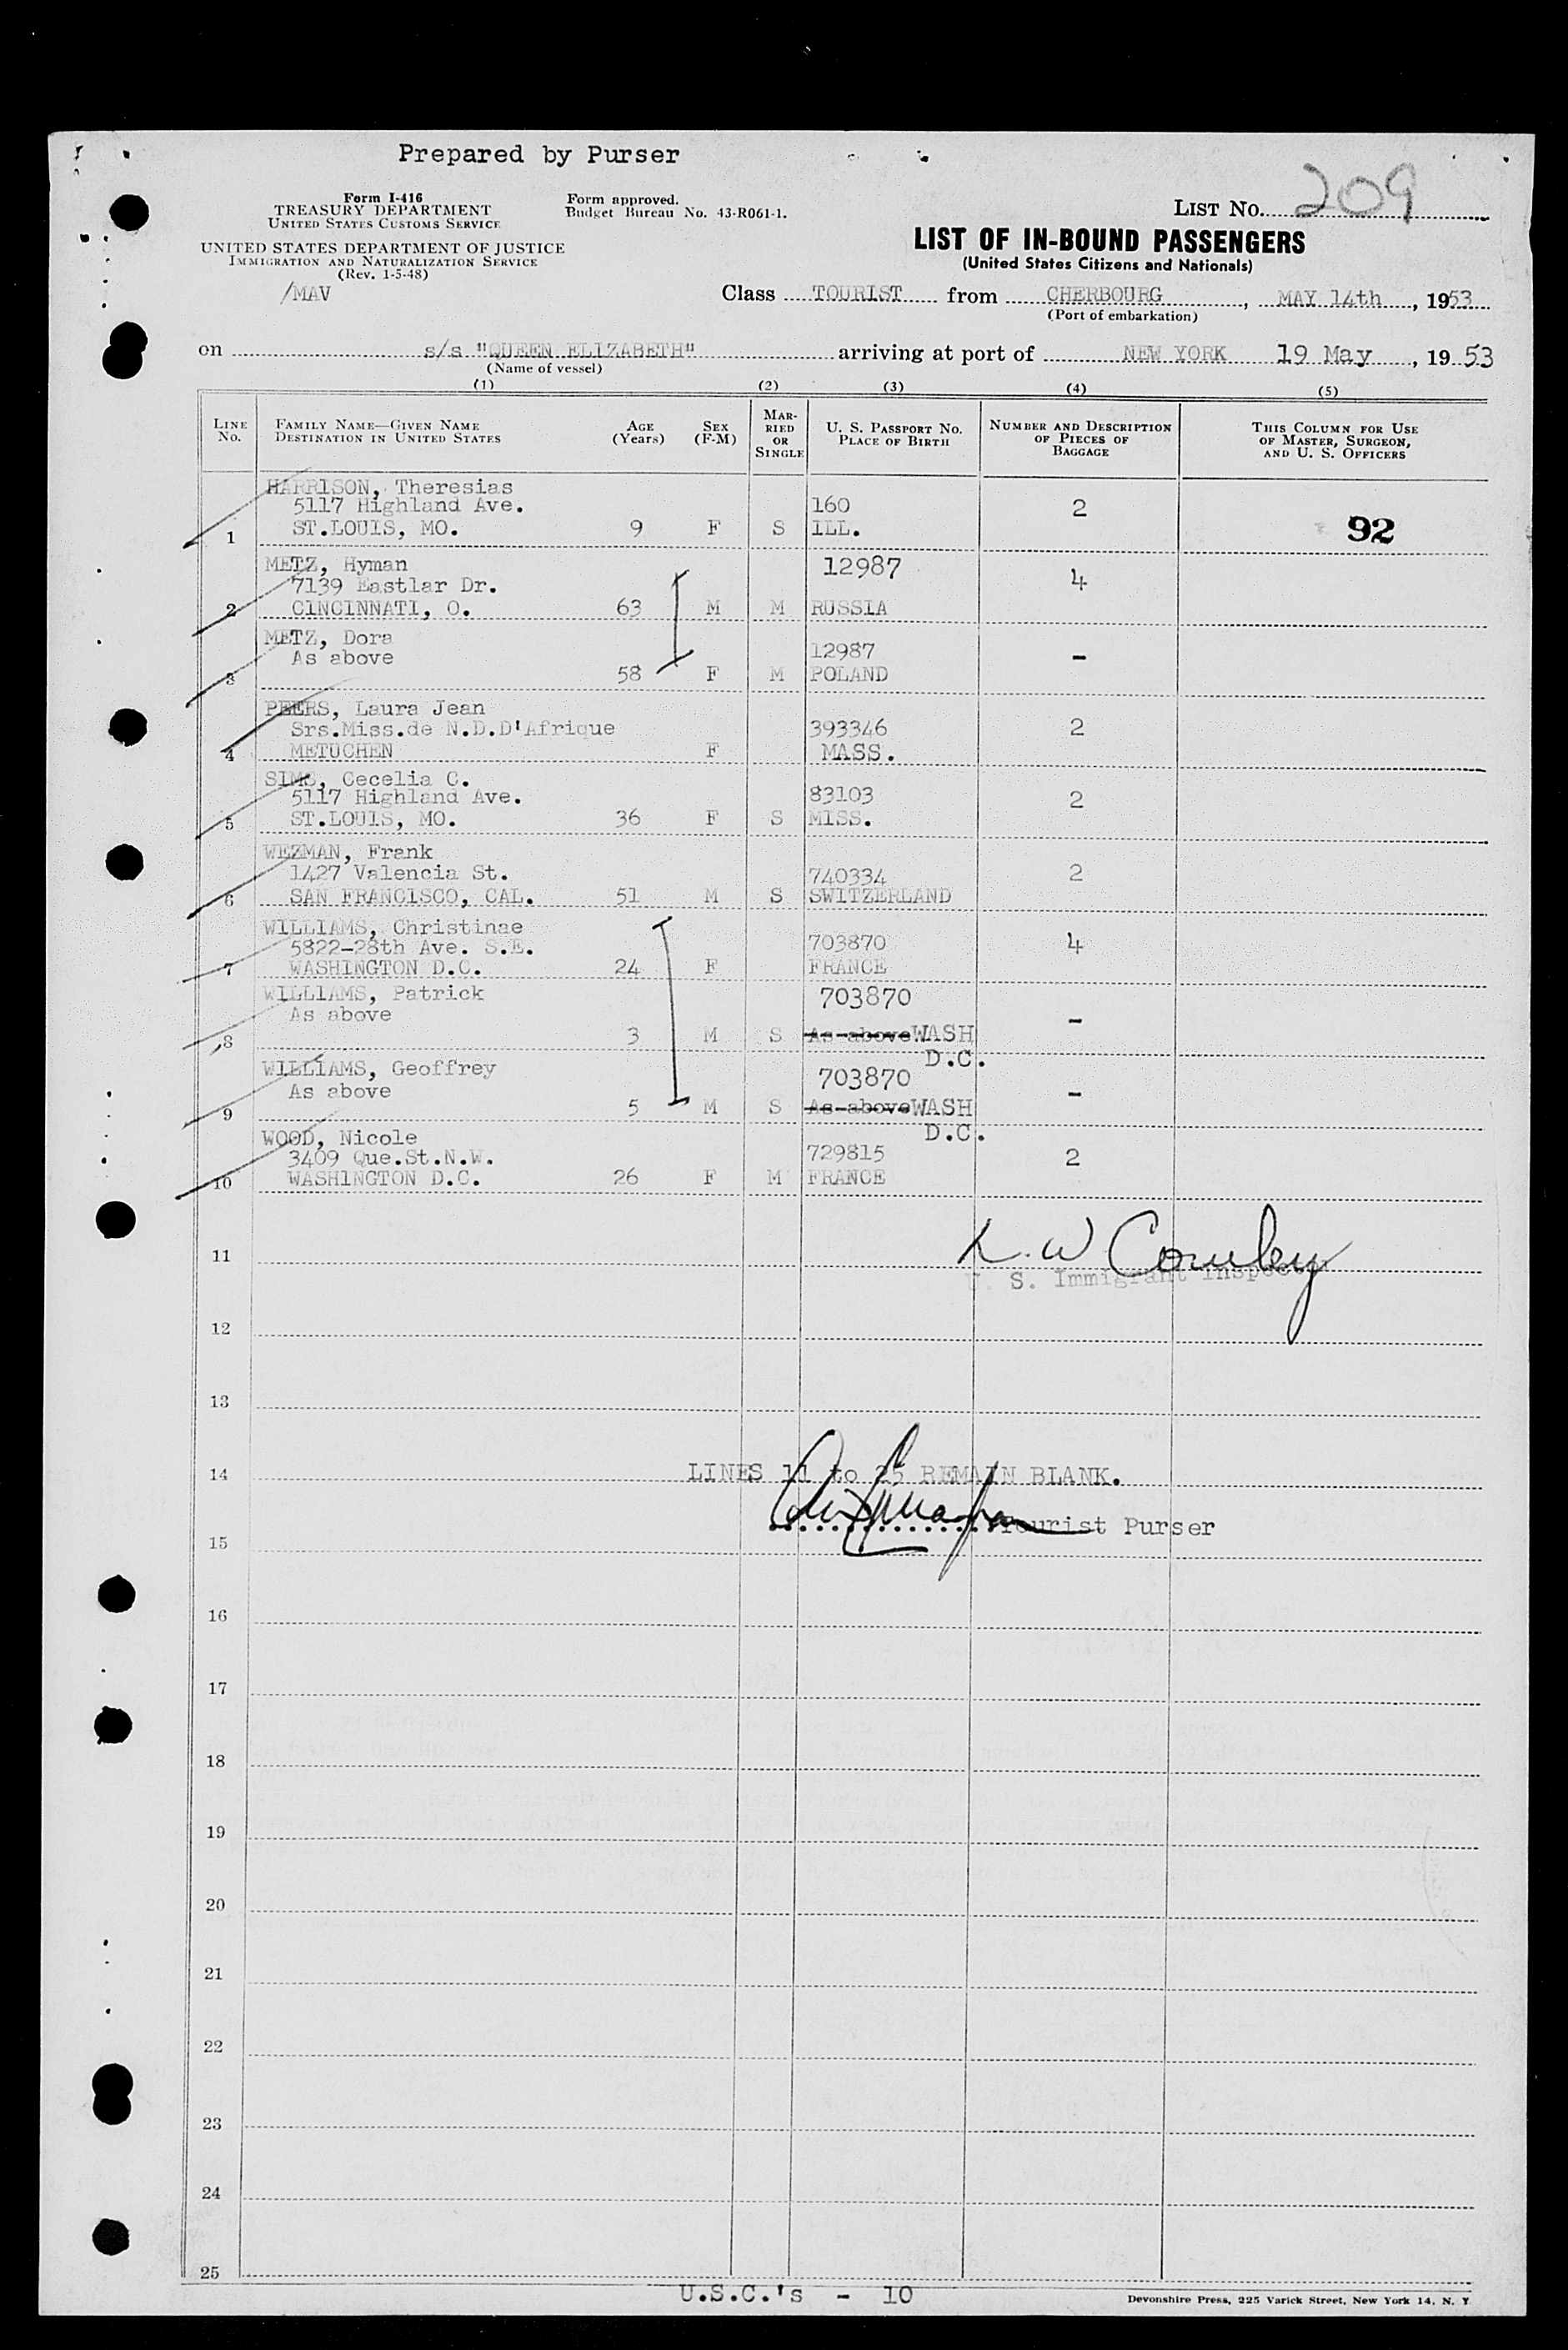 Prepared by Purser
Form I-416
TREASURY DEPARTMENT
UNITED STATES CUSTOMS SERVICE
UNITED STATES DEPARTMENT OF JUSTICE
IMMIGRATION AND NATURALIZATION SERVICE
(Rev. 1-5-48)
/MAV
Form approved.
Budget Bureau No. 43-R061-1.
LIST No. 209
LIST OF IN-BOUND PASSENGERS
(United States Citizens and Nationals)
Class TOURIST from CHERBOURG, MAY 14th, 1953
(Port of embarkation)
on s/s "QUEEN ELIZABETH" arriving at port of NEW YORK 19 May, 1953
(Name of vessel)
(1) (2) (3) (4) (5)
LINE No.
FAMILY NAME—GIVEN NAME
DESTINATION IN UNITED STATES
AGE
(Years)
SEX
(F-M)
MARRIED OR SINGLE
U. S. PASSPORT NO.
PLACE OF BIRTH
NUMBER AND DESCRIPTION OF PIECES OF BAGGAGE
THIS COLUMN FOR USE OF MASTER, SURGEON, AND U. S. OFFICERS
HARRISON, Theresias
5117 Highland Ave. 160 2
1 ST.LOUIS, MO. 9 F S ILL. 92
METZ, Hyman 12987
7139 Eastlar Dr. 4
2 CINCINNATI, O. 63 M M RUSSIA
METZ, Dora 12987
As above -
3 58 F M POLAND
PEERS, Laura Jean
Srs.Miss.de N.D.D'Afrique 393346 2
4 METUCHEN F MASS.
SIMS, Cecelia C.
5117 Highland Ave. 83103 2
5 ST.LOUIS, MO. 36 F S MISS.
WEZMAN, Frank
1427 Valencia St. 740334 2
6 SAN FRANCISCO, CAL. 51 M S SWITZERLAND
WILLIAMS, Christinae
5822-28th Ave. S.E. 703870 4
7 WASHINGTON D.C. 24 F FRANCE
WILLIAMS, Patrick 703870
As above -
8 3 M S As above WASH
D.C.
WILLIAMS, Geoffrey 703870
As above -
9 5 M S As above WASH
D.C.
WOOD, Nicole
3409 Que.St.N.W. 729815 2
10 WASHINGTON D.C. 26 F M FRANCE
11
U. S. Immigrant Inspector
12
13
14 LINES 11 to 25 REMAIN BLANK.
Tourist Purser
15
16
17
18
19
20
21
22
23
24
25
U.S.C.'s - 10
Devonshire Press, 225 Varick Street, New York 14, N. Y.